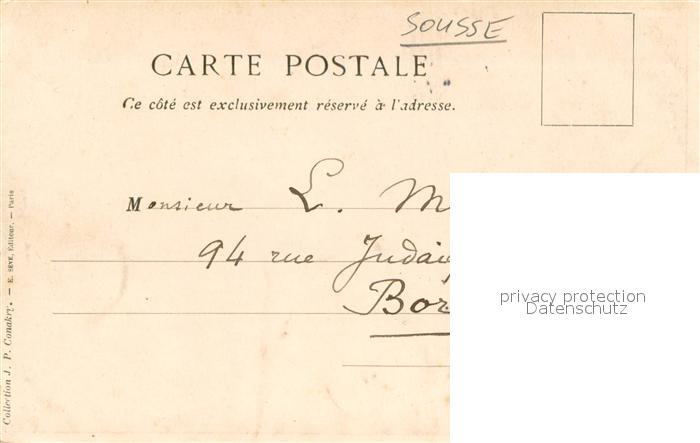 SOUSSE
CARTE POSTALE
Ce côté est exclusivement réservé à l'adresse.
Monsieur L. M
94 rue Judaï
Bor
privacy protection
Datenschutz
Collection J. P. Conakry. — E. SEVE, Editeur. — Paris